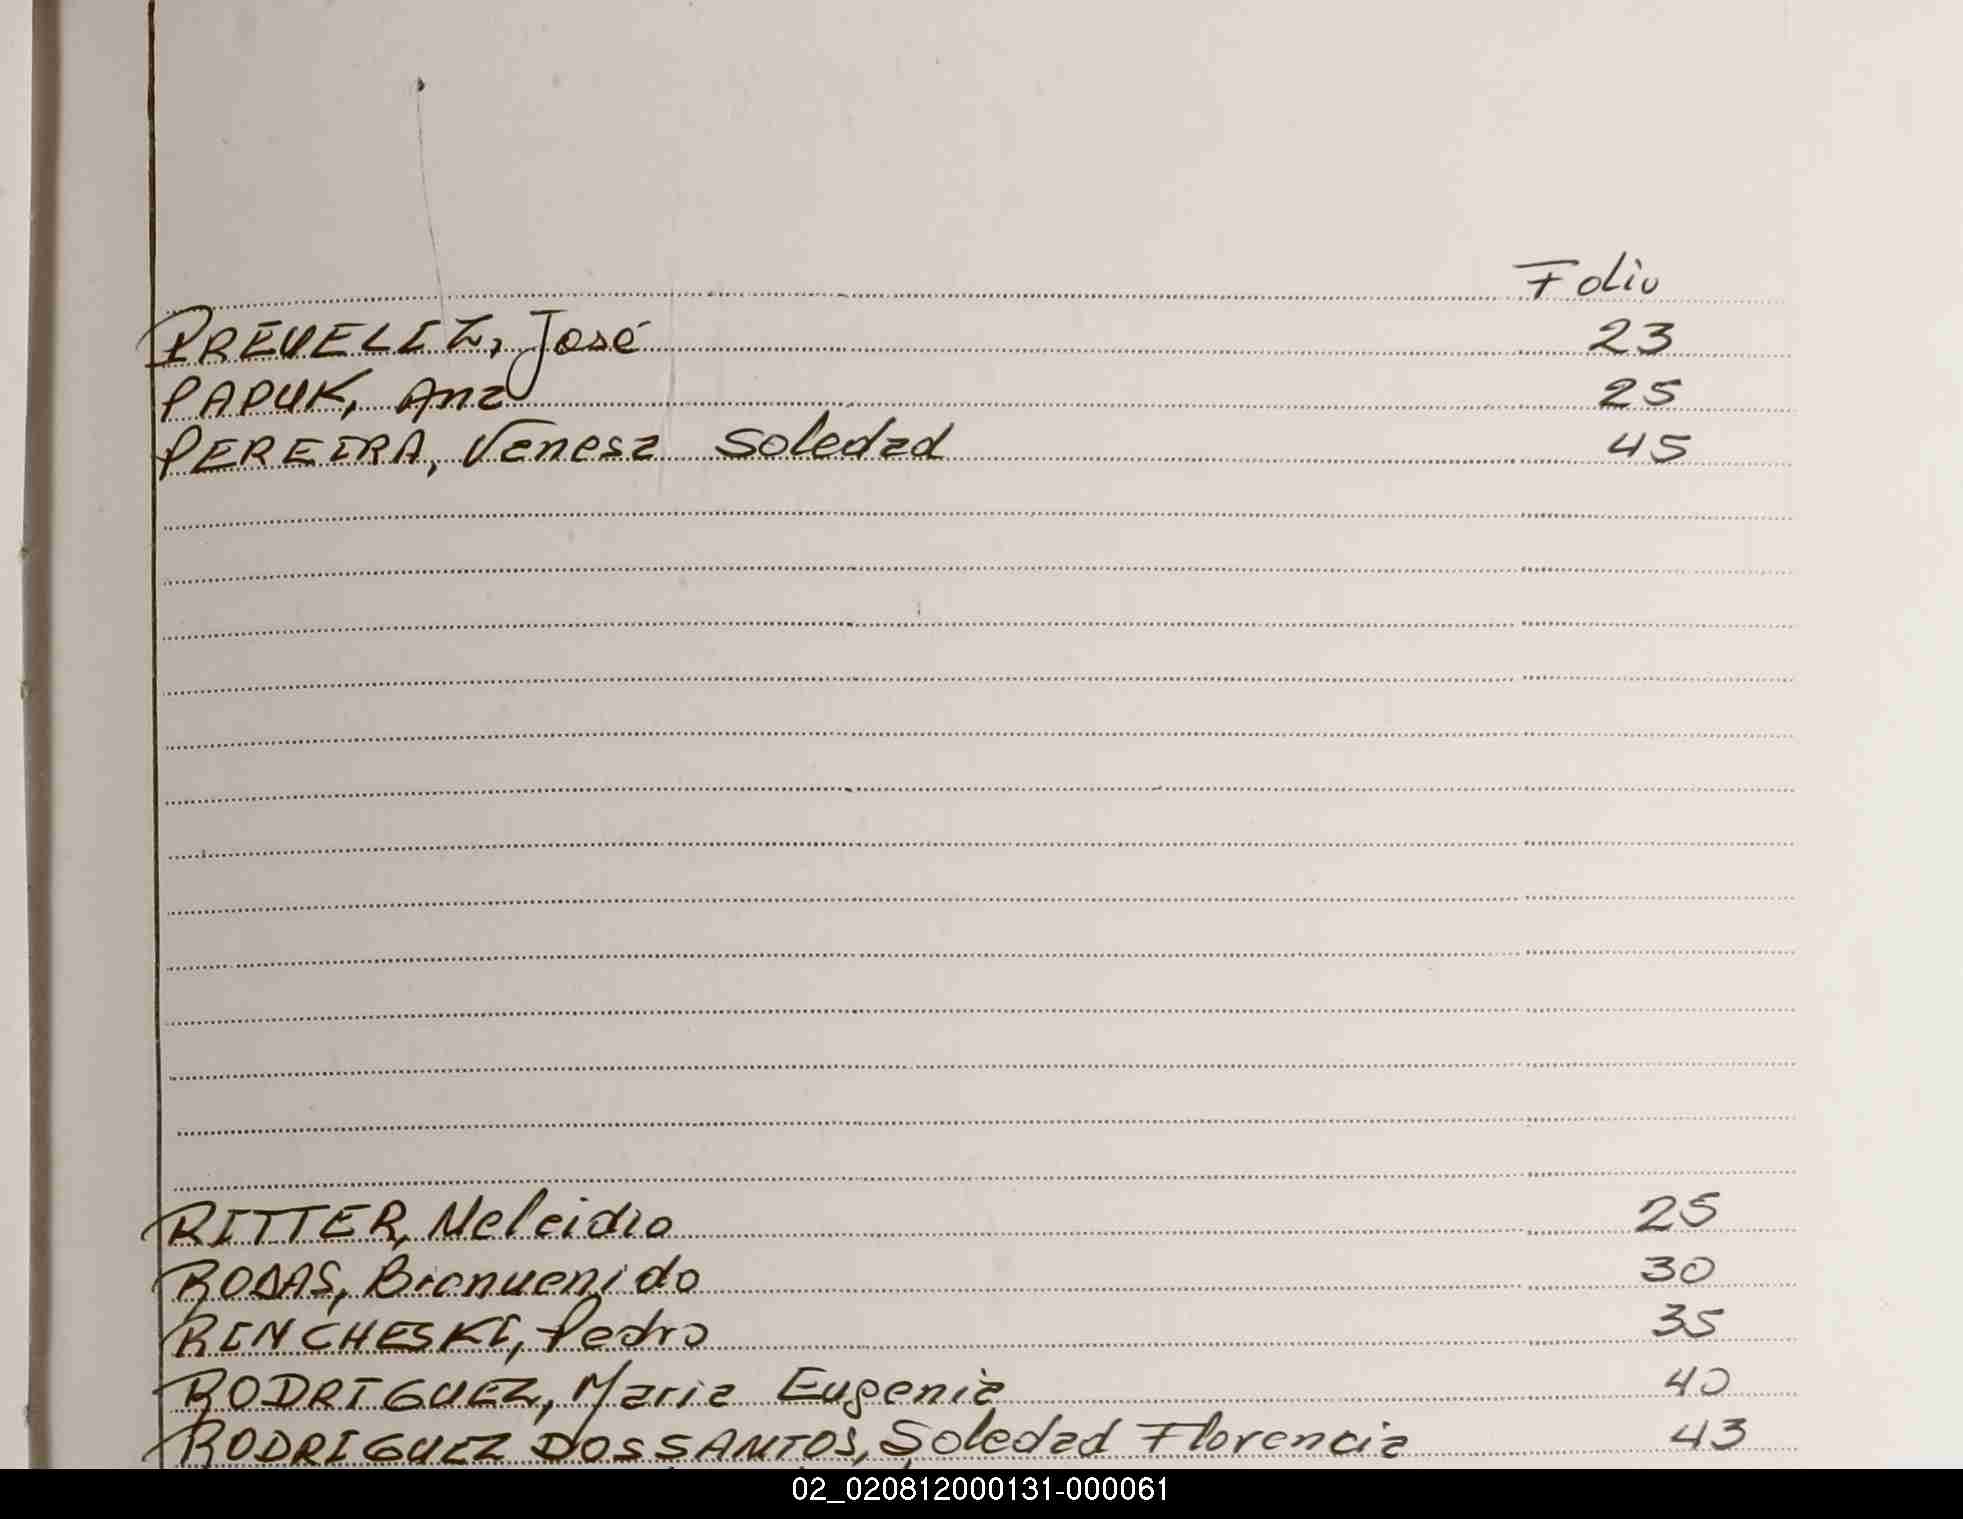 Folio
PREVELIZ, José 23
PAPUK, Ana 25
PEREIRA, Vanesa Soledad 45
RITTER, Meleidro 25
RODAS, Bienvenido 30
RINCHESKI, Pedro 35
RODRIGUEZ, Maria Eugenia 40
RODRIGUEZ DOS SANTOS, Soledad Florencia 43
02_020812000131-000061